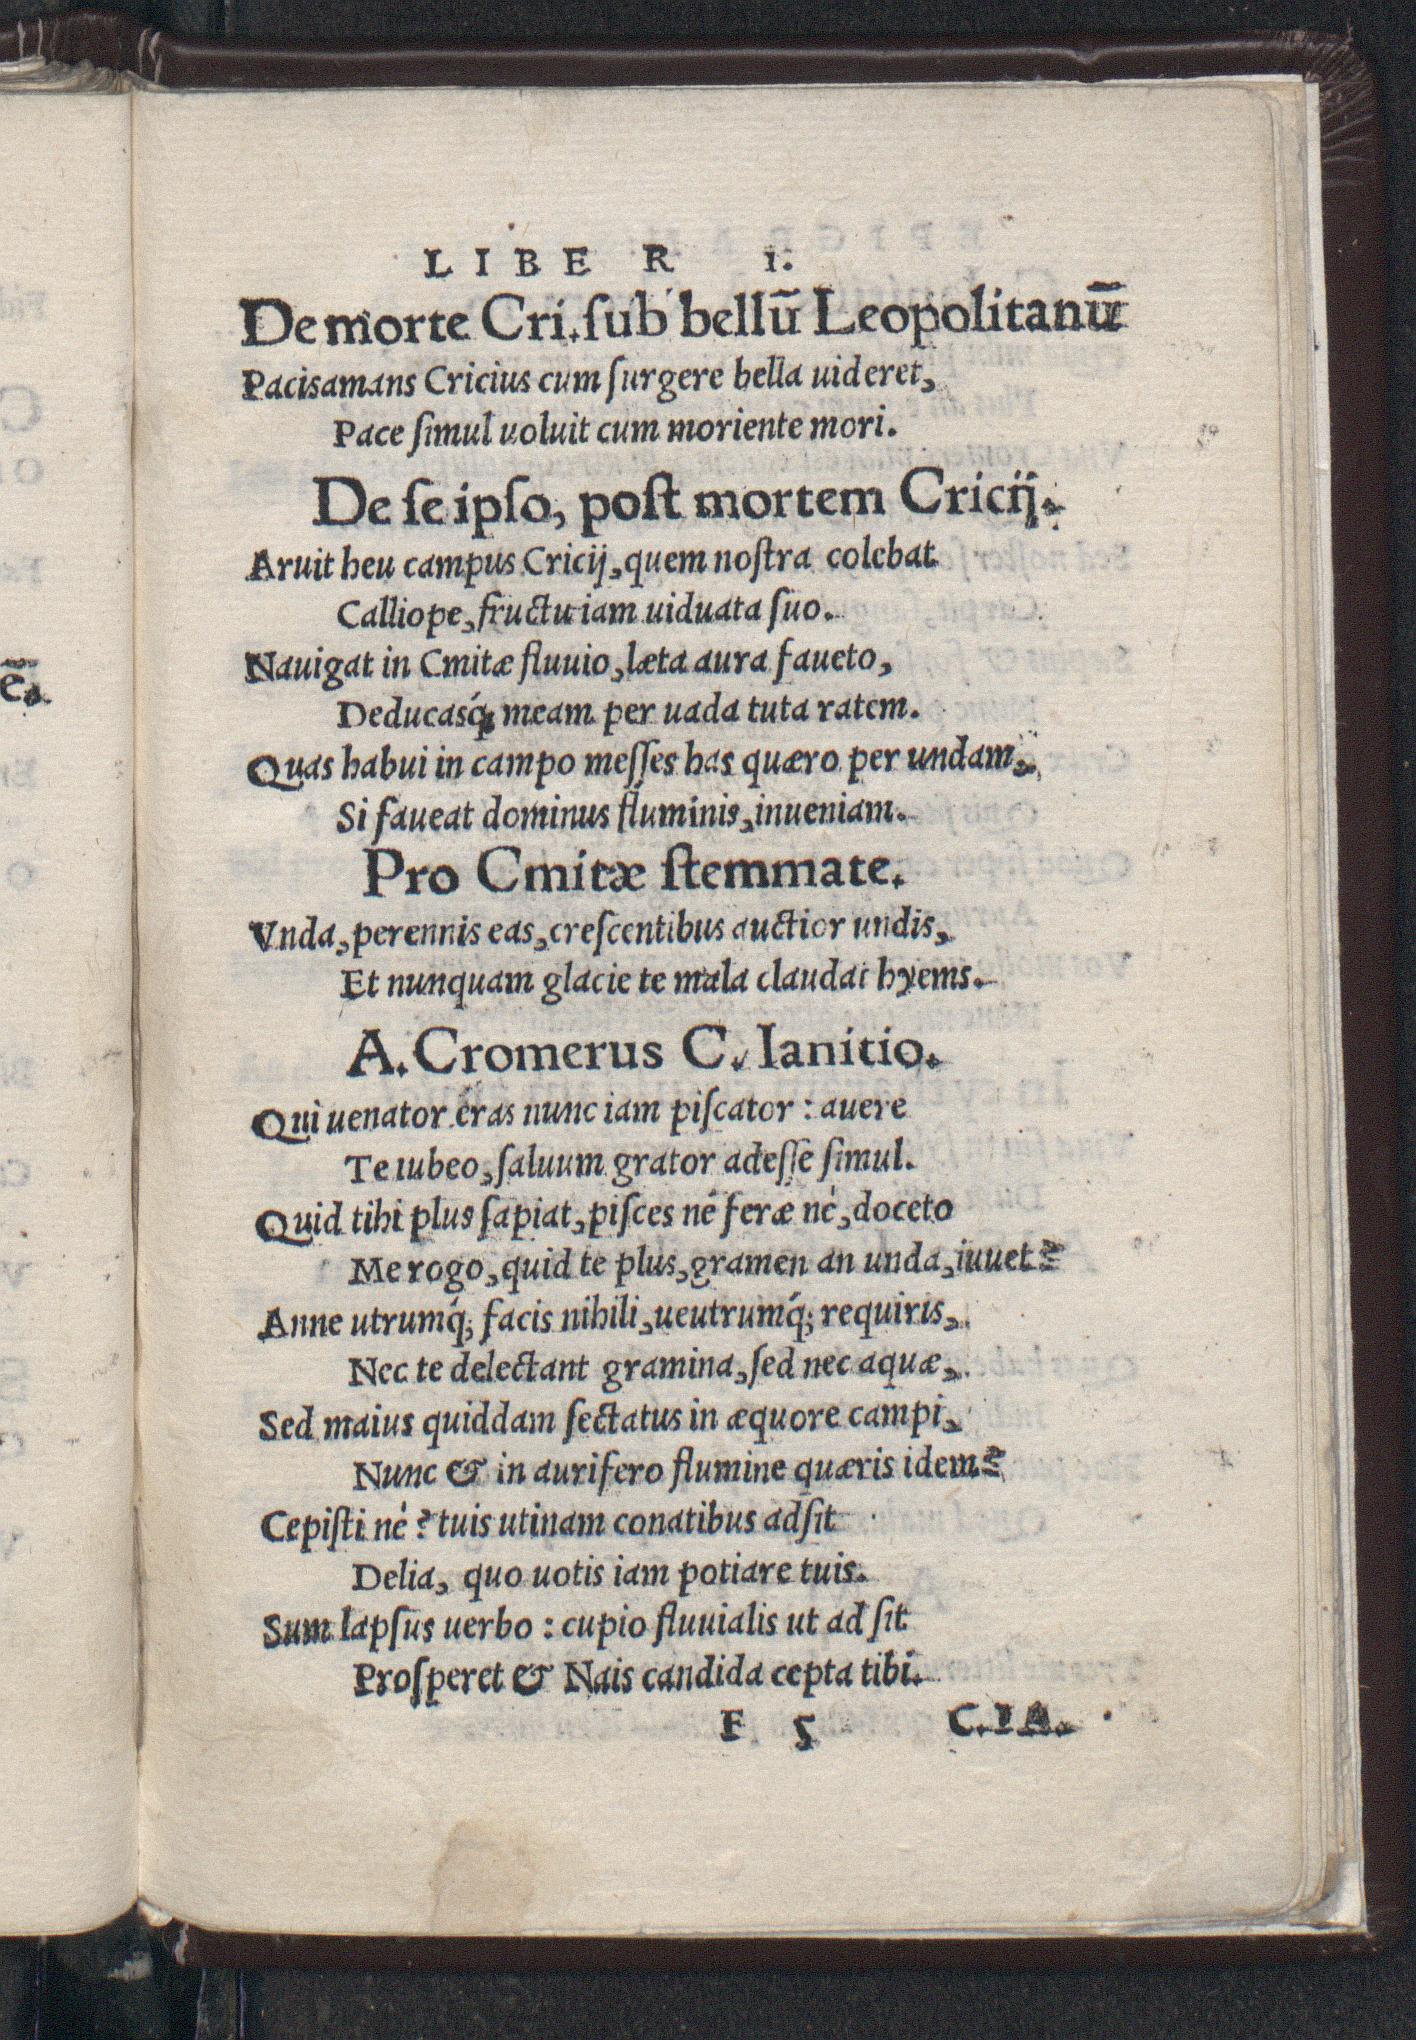 LIBER 1.
De morte Cri. ſub bellū Leopolitanū
Pacis amans Cricius cum ſurgere bella uideret,
Pace ſimul uoluit cum moriente mori.
De ſe ipſo, poſt mortem Cricij.
Aruit heu campus Cricij, quem noſtra colebat
Calliope, fructu iam uiduata ſuo.
Nauigat in Cmitæ fluuio, læta aura faueto,
Deducasq́; meam per uada tuta ratem.
Quas habui in campo meſſes has quæro per undam,
Si faueat dominus fluminis, inueniam.
Pro Cmitæ ſtemmate.
Vnda, perennis eas, creſcentibus auctior undis,
Et nunquam glacie te mala claudat hyems.
A. Cromerus C. Ianitio.
Qui uenator eras nunc iam piſcator : auere
Te iubeo, ſaluum grator adeſſe ſimul.
Quid tibi plus ſapiat, piſces né feræ né, doceto
Me rogo, quid te plus, gramen an unda, iuuet?
Anne utrumq́; facis nihili, ueutrumq́; requiris,
Nec te delectant gramina, ſed nec aquæ,
Sed maius quiddam ſectatus in æquore campi,
Nunc & in aurifero flumine quæris idem?
Cepiſti né ? tuis utinam conatibus adſit
Delia, quo uotis iam potiare tuis.
Sum lapſus uerbo : cupio fluuialis ut ad ſit
Proſperet & Nais candida cepta tibi.
F 5 C. IA.
ē.